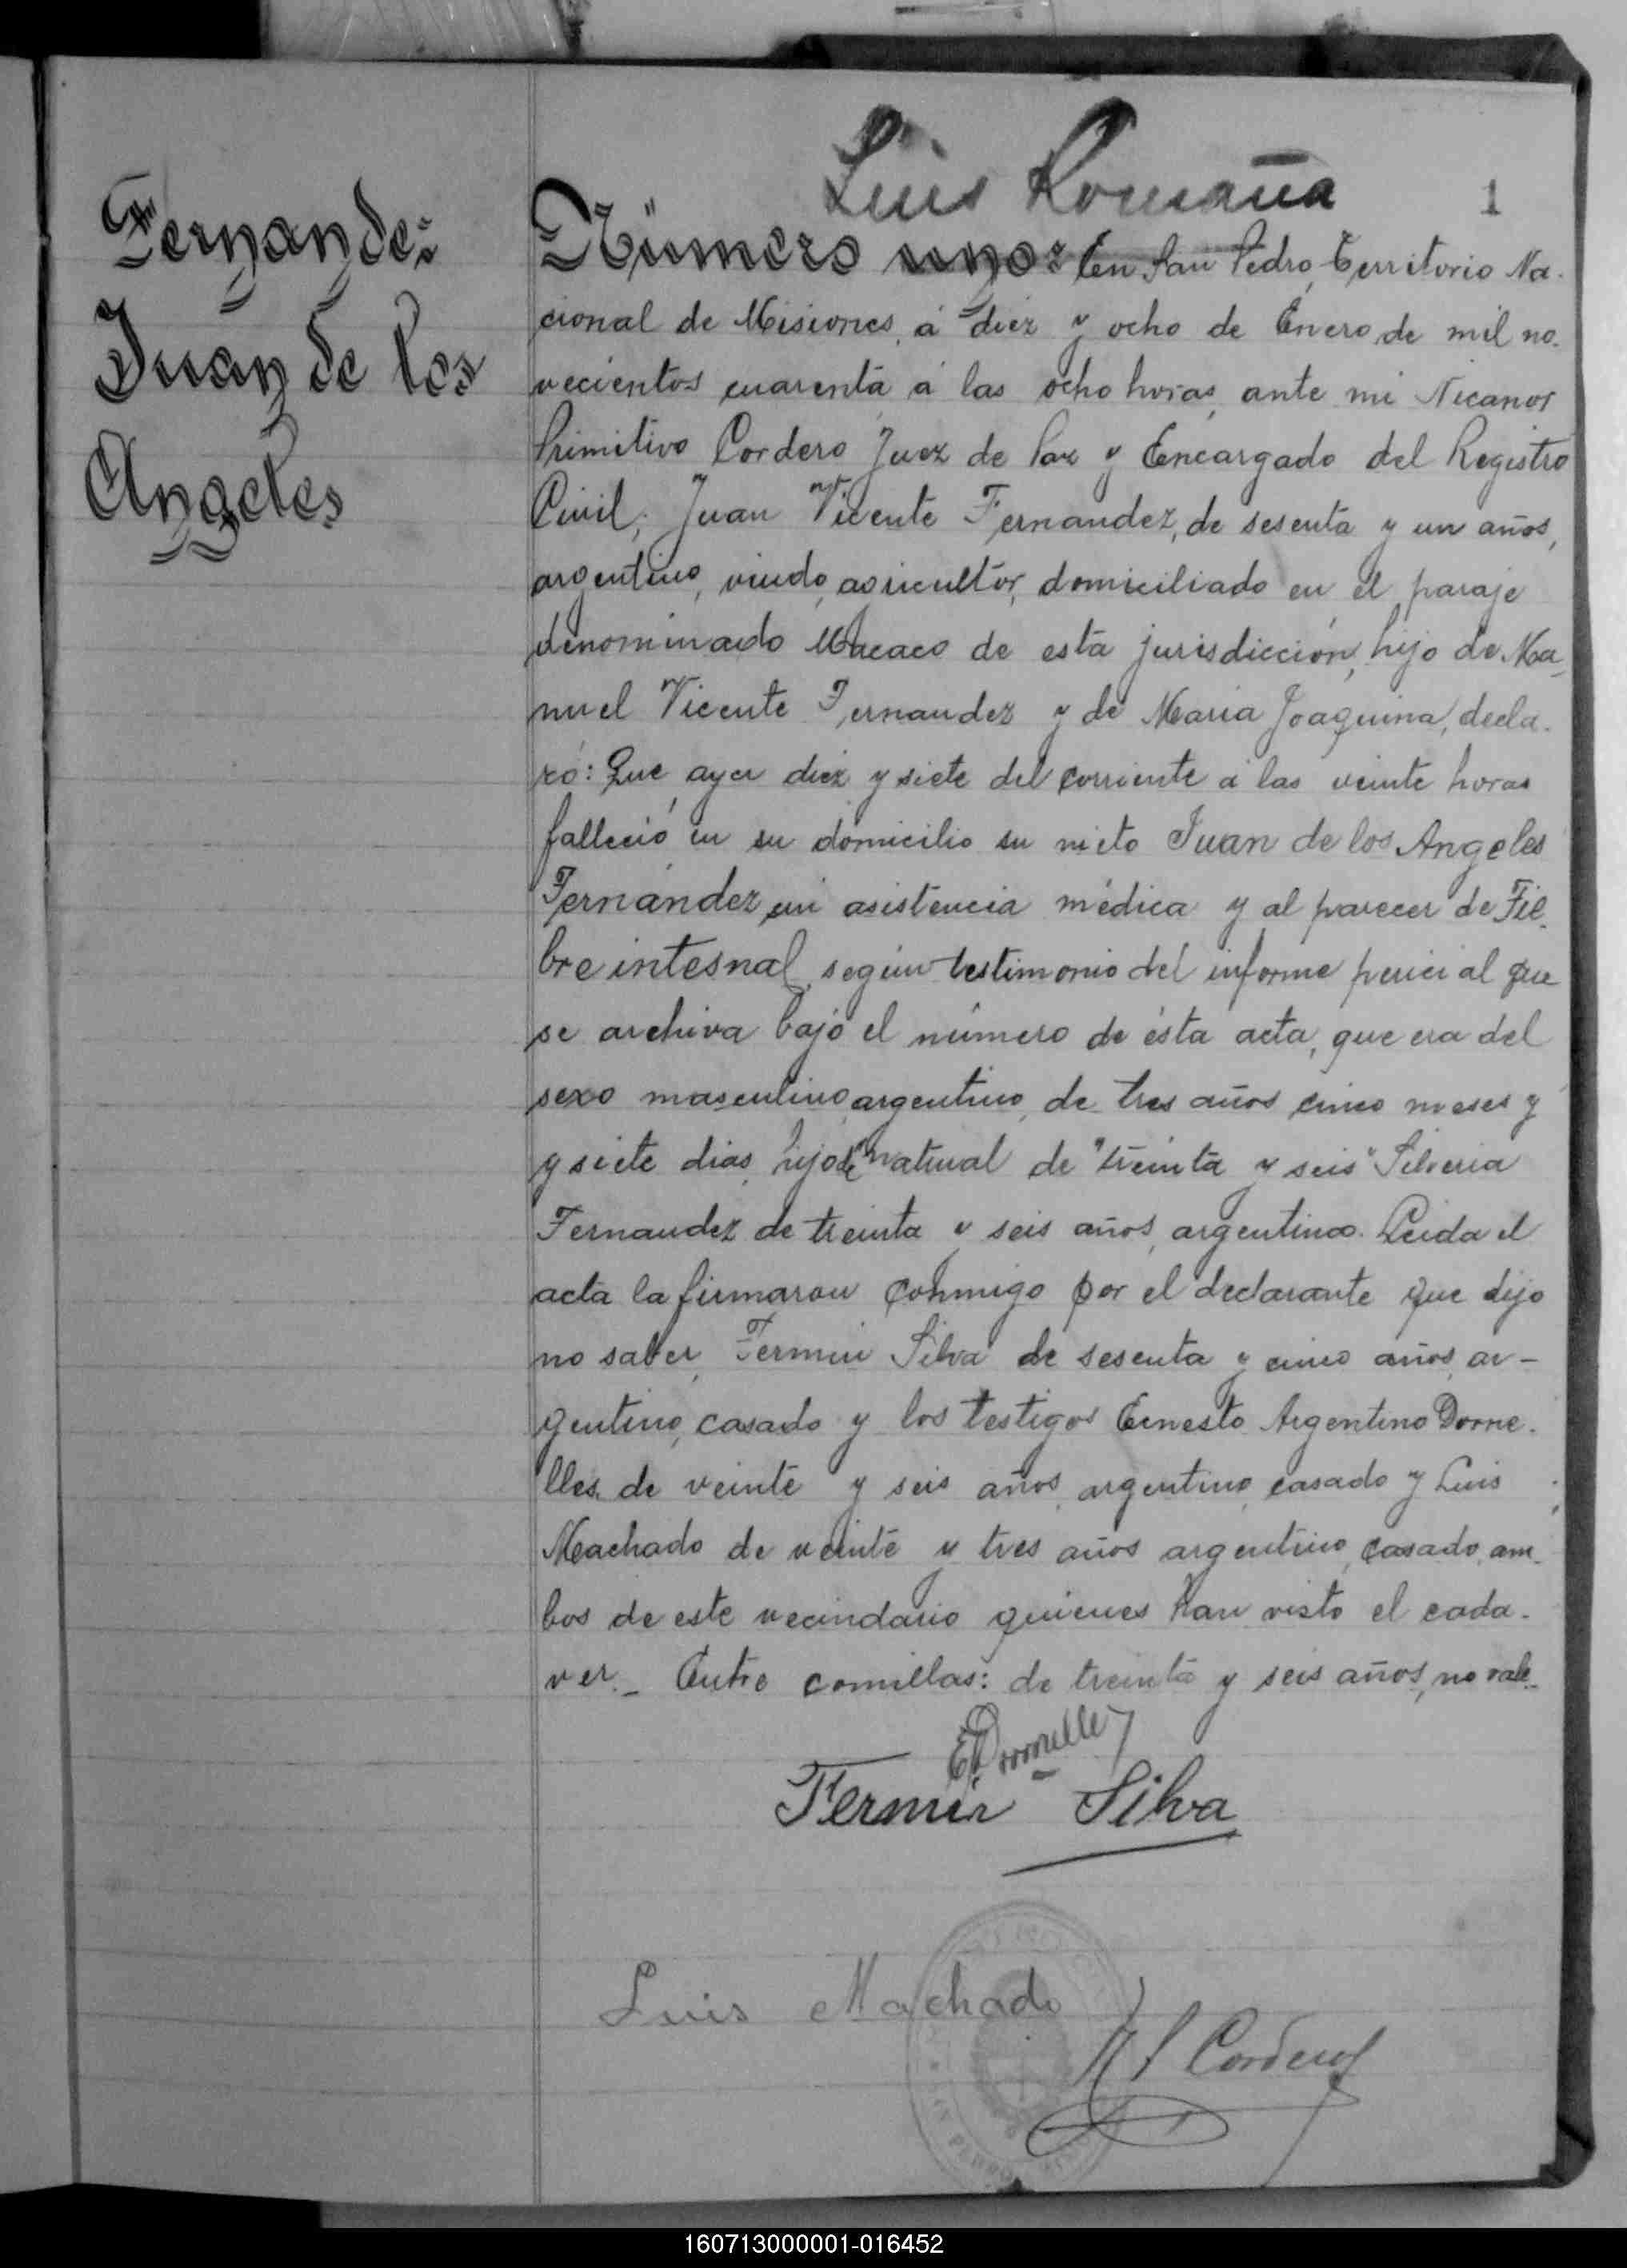 Luis Romaña
1
Fernandez
Juan de los
Angeles
Número uno: En San Pedro, Territorio Na-
cional de Misiones, á diez y ocho de Enero de mil no-
vecientos cuarenta á las ocho horas, ante mi Nicanor
Primitivo Cordero Juez de Paz y Encargado del Registro
Civil, Juan Vicente Fernandez, de sesenta y un años,
argentino, viudo, agricultor, domiciliado en el paraje
denominado Macaco de esta jurisdicción, hijo de Ma-
nuel Vicente Fernandez y de Maria Joaquina, decla-
ró: Que ayer diez y siete del corriente á las veinte horas
falleció en su domicilio su nieto Juan de los Angeles
Fernández sin asistencia médica y al parecer de Fie-
bre intesnal, según testimonio del informe pericial que
se archiva bajo el número de ésta acta, que era del
sexo masculino, argentino, de tres años cinco meses y
y siete dias, hijo de natural de "treinta y seis" Silveria
Fernandez de treinta y seis años, argentina. Leida el
acta la firmaron conmigo por el declarante que dijo
no saber, Fermin Silva de sesenta y cinco años, ar-
gentino, casado y los testigos Ernesto Argentino Dorne-
lles de veinte y seis años, argentino, casado y Luis
Machado de veinte y tres años argentino, casado, am-
bos de este vecindario quienes han visto el cada-
ver._ Entre comillas: de treinta y seis años, no vale_
EDornelles
Fermin Silva
Luis Machado
N P Cordero
160713000001-016452